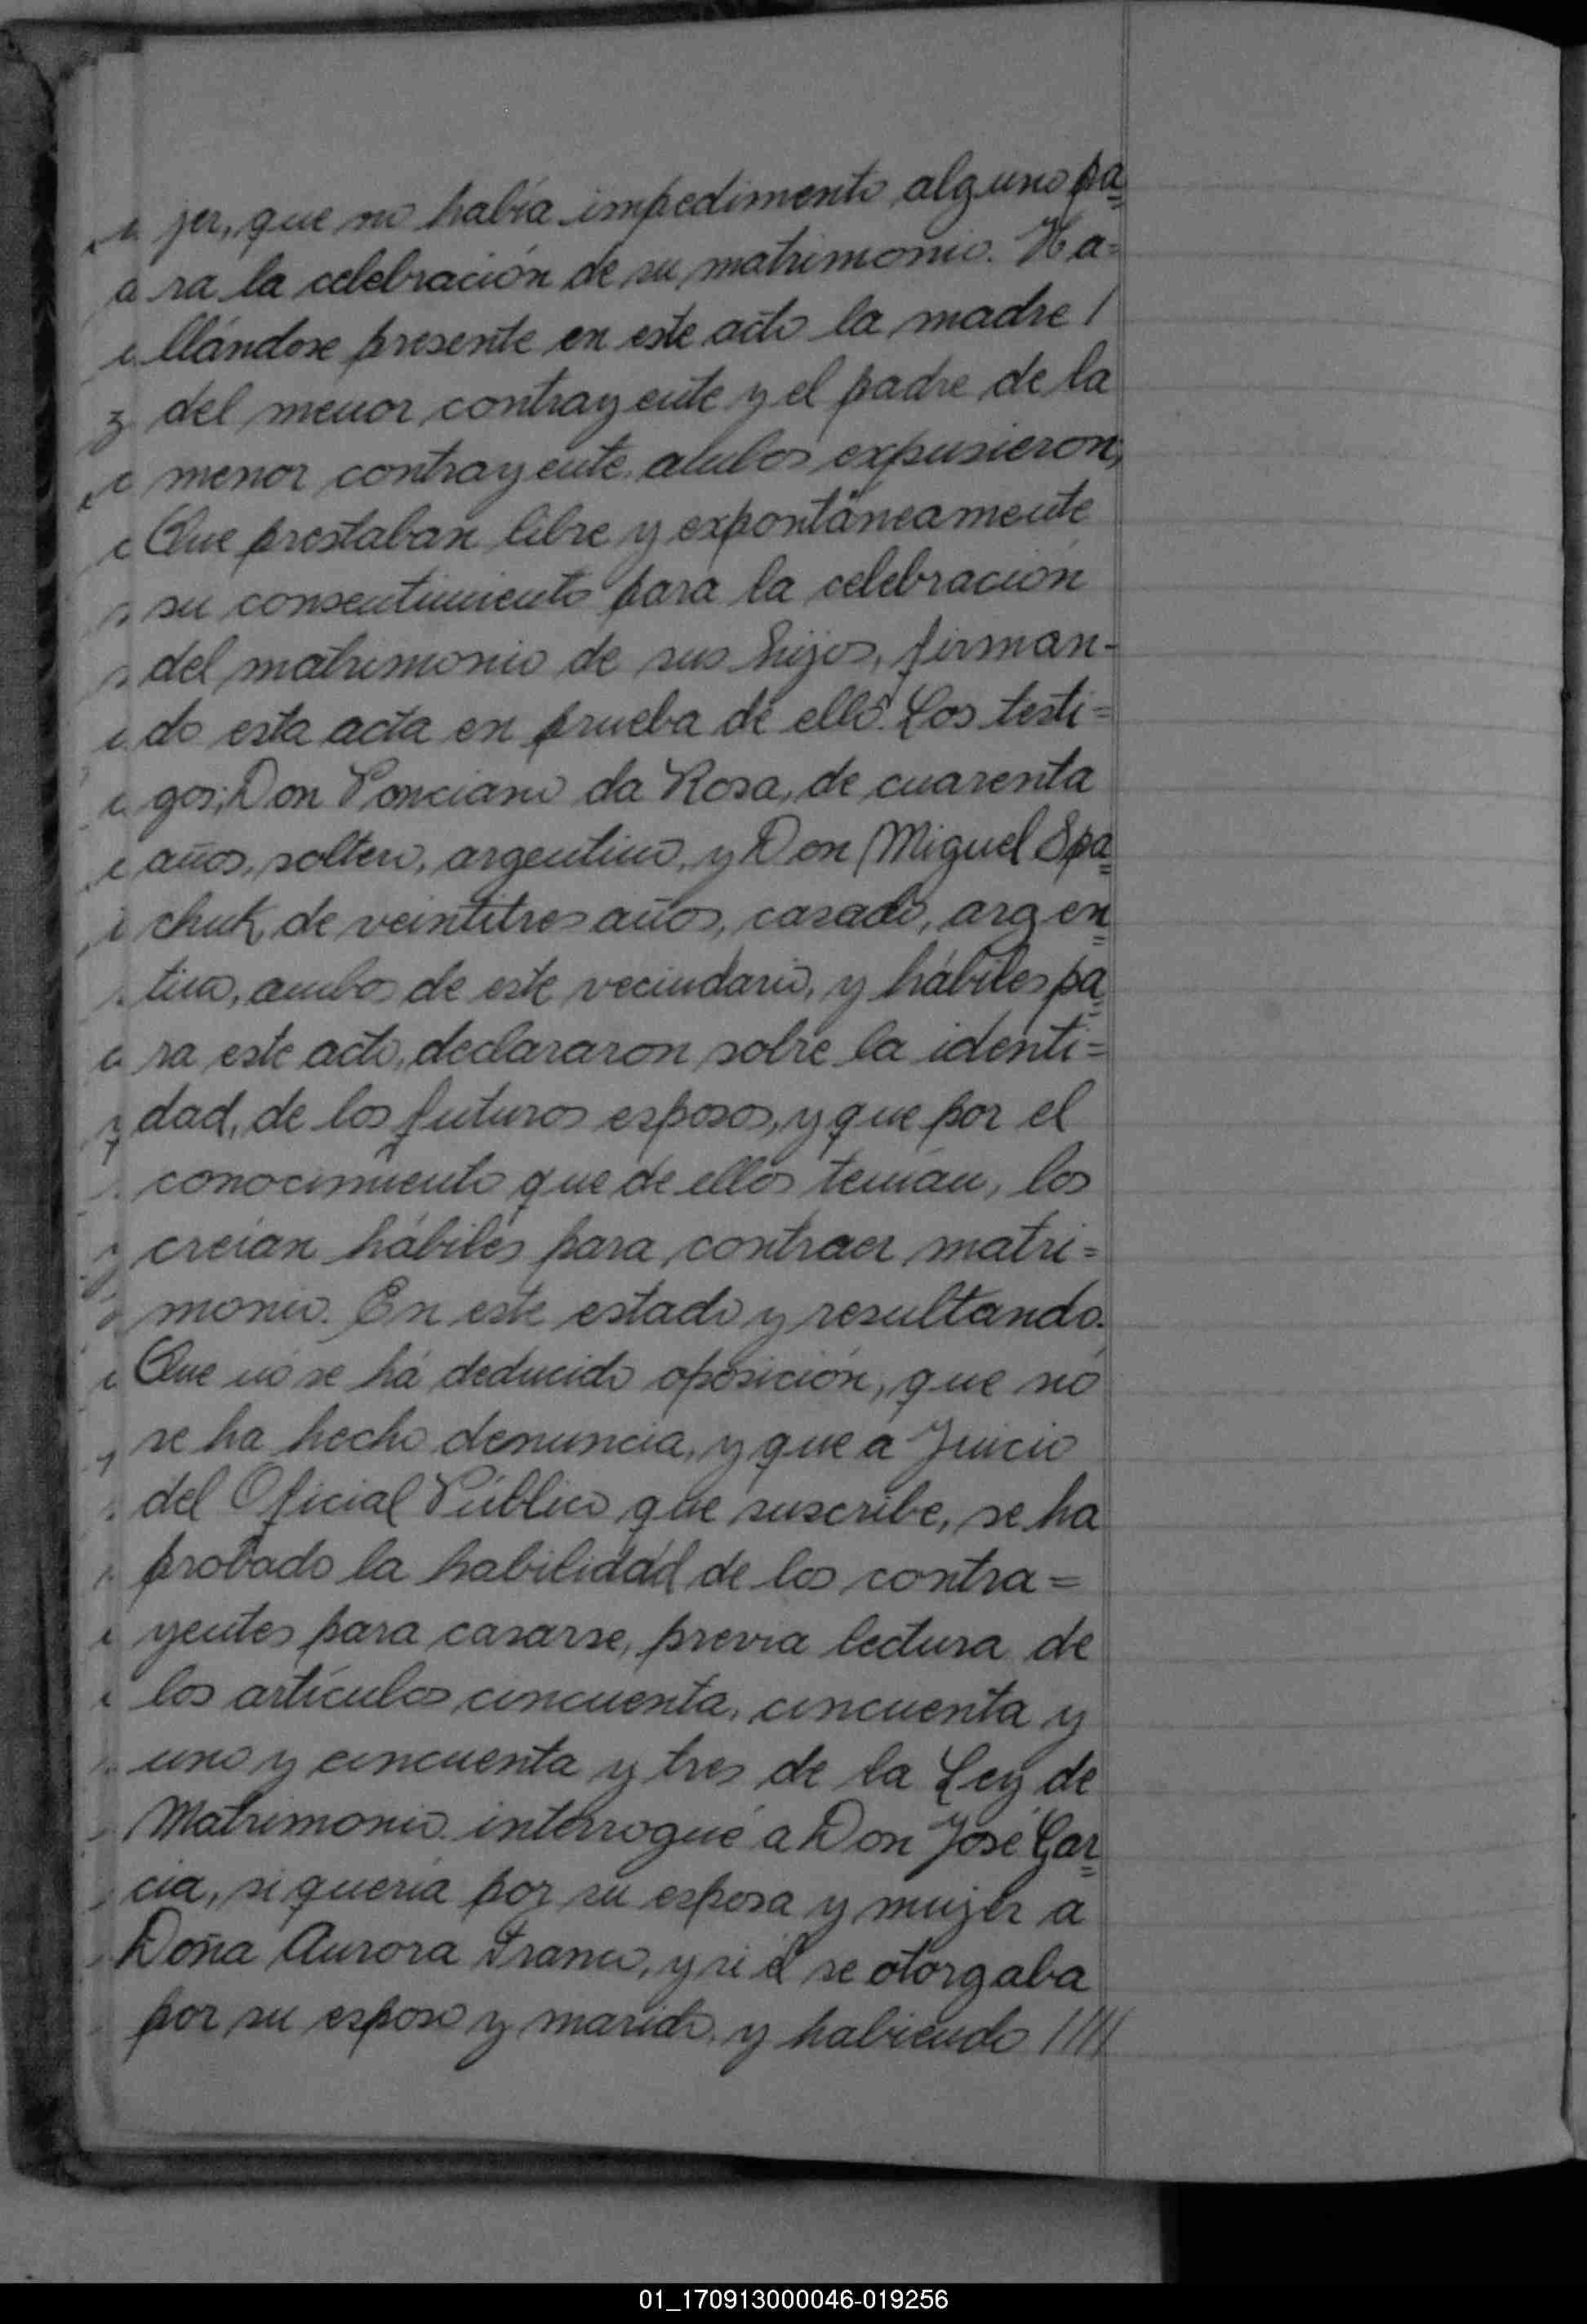 jer, que no había impedimento alguno pa=
ra la celebración de su matrimonio. Ha=
llándose presente en este acto la madre /
del menor contrayente y el padre de la
menor contrayente, ambos expusieron;
Que prestaban libre y expontáneamente
su consentimiento para la celebración
del matrimonio de sus hijos, firman-
do esta acta en prueba de ello. Los testi=
gos; Don Ponciano da Rosa, de cuarenta
años, soltero, argentino, y Don Miguel Spa=
chuk, de veintitres años, casado, argen=
tino, ambos de este vecindario, y hábiles pa=
ra este acto, declararon sobre la identi=
dad, de los futuros esposos, y que por el
conocimiento que de ellos tenían, los
creían hábiles para contraer matri=
monio. En este estado y resultando.
Que no se há deducido oposición, que no
se ha hecho denuncia, y que a Juicio
del Oficial Público que suscribe, se ha
probado la habilidad de los contra=
yentes para casarse, previa lectura de
los artículos cincuenta, cincuenta y
uno y cincuenta y tres de la Ley de
Matrimonio interrogué a Don José Gar=
cia, si quería por su esposa y mujer a
Doña Aurora Franco, y si él se otorgaba
por su esposo y marido, y habiendo ////
01_170913000046-019256